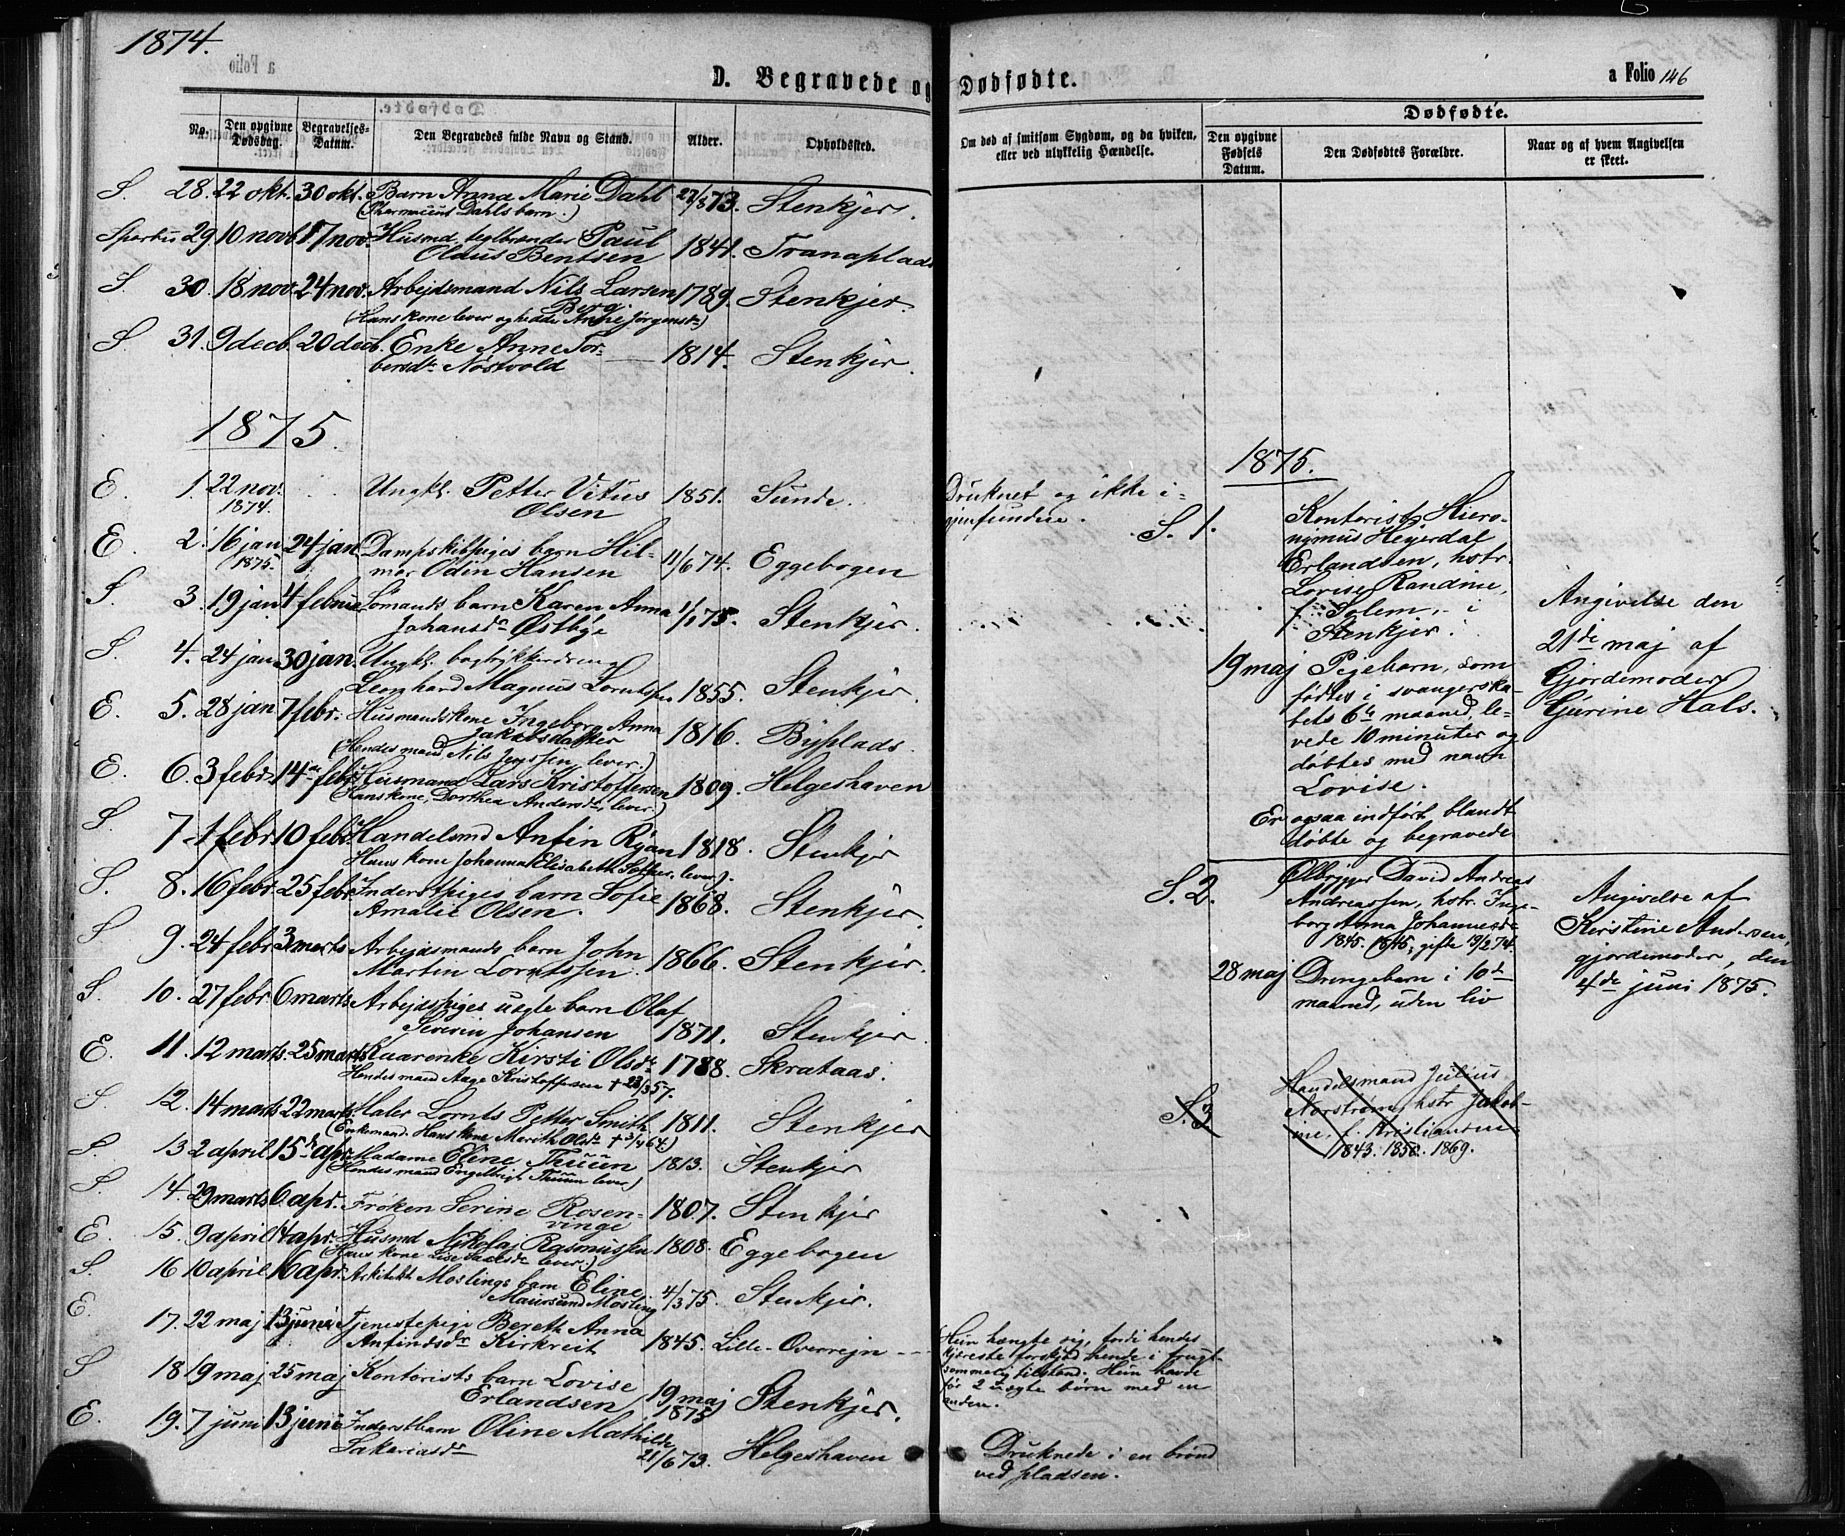 1874.
D. Begravede og Dødfødte.
a Folio 146
No.
Den opgivne Dødsdag.
Begravelses-Datum.
Den Begravedes fulde Navn og Stand.
Alder.
Opholdssted.
Om død af smitsom Sygdom, og da hvilken,
eller ved ulykkelig Hændelse.
Dødfødte.
Den opgivne Fødsels Datum.
Den Dødfødtes Forældre.
Naar og af hvem Angivelsen er skeet.
S. 28. 22 okt. 30 okt. Barn Anna Marie Dahl 27/8 73. Stenkjer.
(Pharmaceut Dahls barn.)
Sparbu 29 10 novb 17 nov Husmd. teglbrænder Paul
Oldus Bentsen 1841. Tranaplads
S. 30. 18 nov. 24 nov. Arbejdsmand Nils Larsen 1789. Stenkjer.
Berg
(Hans kone lever og hedder Anne Jørgensdr)
S 31. 9 decb. 20 decb. Enke Anne Tor-
bersdr Nøstvold 1814. Stenkjer.
1875.
E. 1. 22 nov. 1874. Ungkl. Petter Vitus
Olsen 1851. Sunde. Druknet og ikke i-
gjenfunden.
E. 2. 16 jan 1875. 24 jan Dampskibspiges barn Hil-
mar Odin Hansen 11/6 74. Eggebogen
S. 3. 19 jan 4 febr. Sømands barn Karen Anna
Johansdr Østbye 1/1 75. Stenkjer.
S. 4. 24 jan 30 jan. Ungkl. bogtrykkerdreng
Leonhard Magnus Lorntsen 1855. Stenkjer.
E. 5. 28 jan 7 febr. Husmandskone Ingeborg Anna
Jakobsdatter 1816. Byplads.
(Hendes mand Nils Jenssen, lever.)
E. 6. 3 febr. 14 febr Husmand Lars Kristoffersen 1809. Helgeshaven
(Hans kone, Dorthea Andersdr, lever.)
S. 7 1 febr 10 febr. Handelsmd Anfin Ryan 1818. Stenkjer
Hans kone Johanna Elisabeth Sofie, lever).
S. 8. 16 febr. 25 febr Inderstpiges barn Sofie
Amalie Olsen. 1868. Stenkjer.
S 9. 24 febr 3 marts Arbejdsmands barn John
Martin Lorntssen. 1866. Stenkjer.
S. 10. 27 febr 6 marts Arbejdspiges uægte barn Olaf
Severin Johansen 1871. Stenkjer.
E. 11. 12 marts 25 marts Kaarenke Kirsti Olsdr 1788. Skrataas.
Hendes mand Aage Kristoffersen † 23/3 57.
S. 12. 14 marts 22 marts. Maler Lornts Petter Smith 1811. Stenkjer
(Enkemand. Hans kone Merith Olsdr † 3/4 64.)
S. 13 2 april 15de apr Madame Eline Thuun 1813. Stenkjer
Hendes mand Engelbrigt Thuun lever)
S. 14. 29 marts 6 apr. Frøken Serine Rosen-
vinge 1807. Stenkjer
E. 15. 9 april 14 apr. Husmd Nikolaj Rasmussen 1808. Eggebogen
(Hans kone lever.)
S. 16 10 april 16 apr. Arkitekt Moslings barn Eline
Maursund Mosling 4/3 75. Stenkjer.
E. 17. 22 maj 13 juni Tjenestepige Bereth Anna
Anfindsdr Kirkreit 1845. Lille-Overrejn
Hun hængte sig, fordi hendes
kjæreste forskjød hende i frugt-
sommelig tilstand. Hun havde
før 2 uægte børn med en
anden.
S 18 19 maj 25 maj Kontorists barn Lovise
Erlandsen 19 maj 1875 Stenkjer.
E. 19. 7 juni 13 juni Inderstbarn Oline Mathilde
Sakariasdr 21/6 73. Helgeshaven
Druknede i en brønd
ved pladsen.
1875.
S. 1. Kontorist Hiero-
nymus Heyerdal
Erlandsen, hstr.
Lovise Randine,
f. Solem, i
Stenkjer.
19 maj Pigebarn, som
fødtes i svangerska-
bets 6te maaned, le-
vede 10 minuter og
døbtes med navn
Lovise.
Er ogsaa indført blandt
døbte og begravede
Angivelse den
21de maj af
Gjordemoder
Gurine Hals.
S. 2. Ølbrygger David Andreas
Andreassen, hstr. Inge-
borg Anna Johannesdr
1845. 1845, gifte 19/2 74.
28 maj Drengebarn i 10de
maaned, uden liv
Angivelse af
Kirstine Andersen,
gjordemoder, den
4de juni 1875.
S. 3 Handelsmand Julius
Norstrøm, hstr. Jakob-
ine, f. Kristiansen
1843. 1850. 1869.